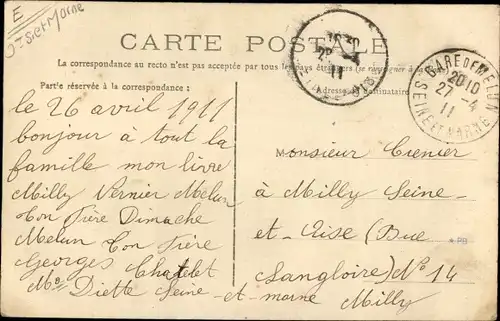 E
Sie et Marne
CARTE POSTALE
La correspondance au recto n'est pas acceptée par tous les pays étrangers (se renseigner à la
Partie réservée à la correspondance :
Adresse Destinataire
GARE DE MELUN
20 10
27 - 4
11
SEINE ET MARNE
le 26 avril 1911
bonjour à tout la
famille mon livre
Milly Vernier Melun
ton Frère Dimache
Melun ton Frère
Georges Chatelet
Me Diette Seine-et-marne
Monsieur Crenier
à Milly Seine-
et-Oise (Rue
Langloire) No 14
Milly
* PB